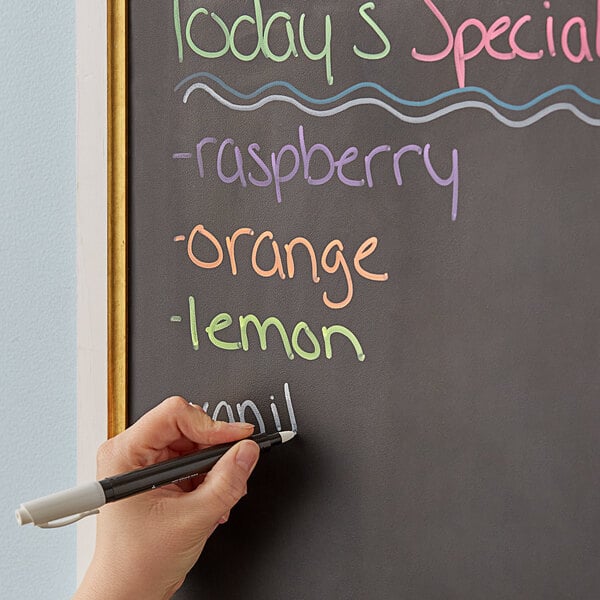 Today's Special
-raspberry
-orange
-lemon
vanil